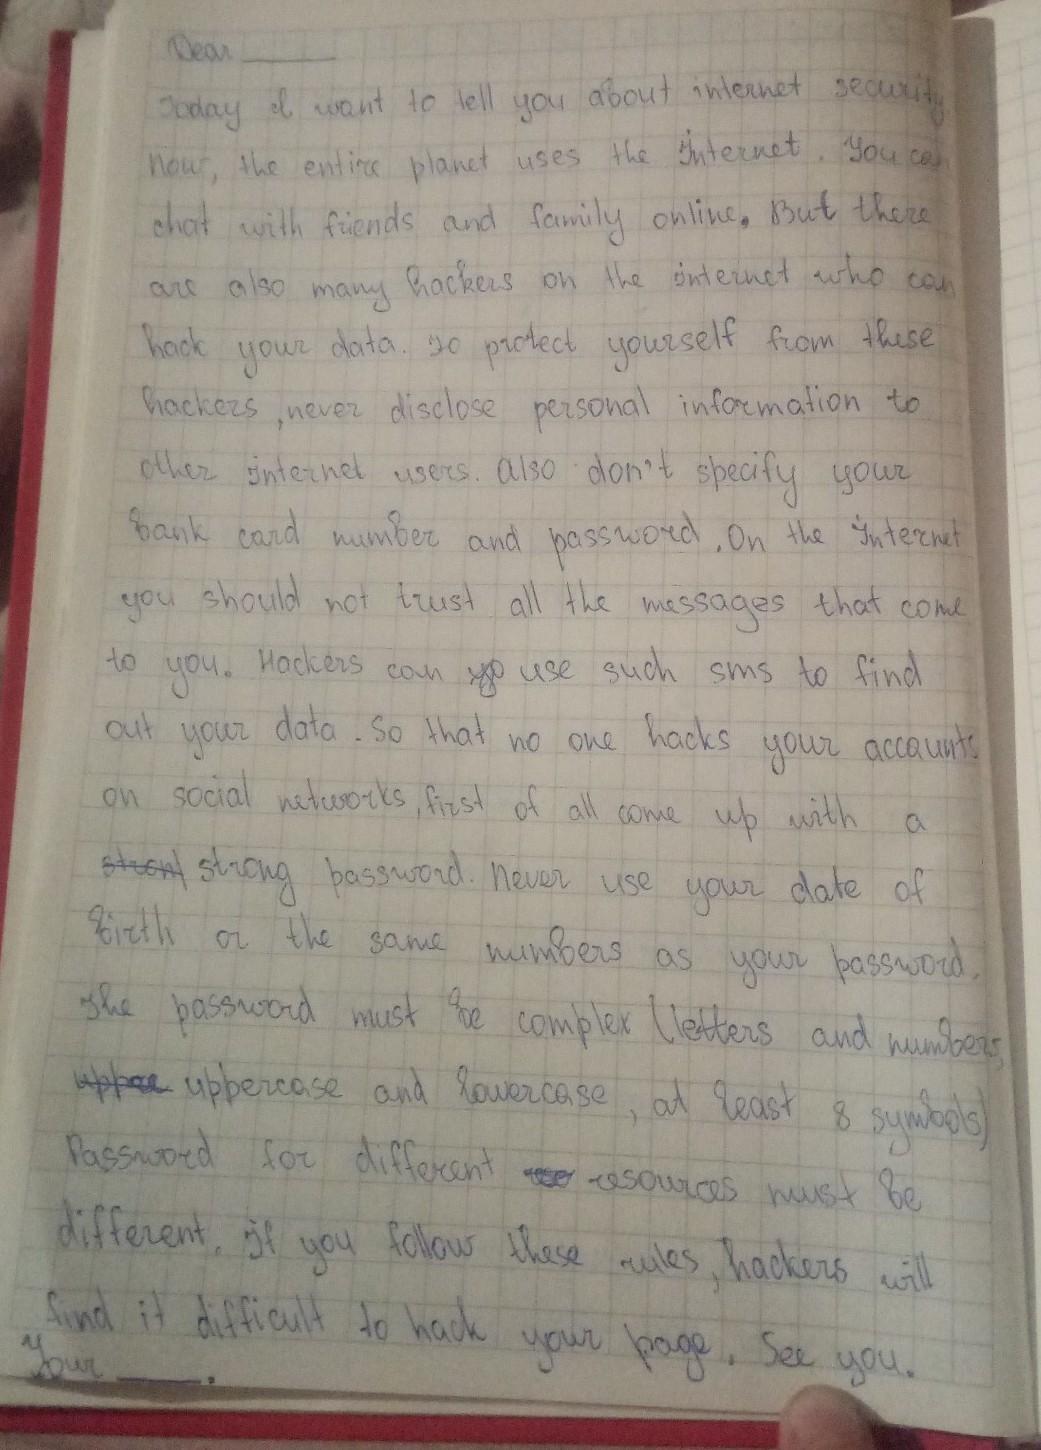 Dear ____
Today I want to tell you about internet security
Now, the entire planet uses the Internet. You can
chat with friends and family online. But there
are also many hackers on the internet who can
hack your data. To protect yourself from these
hackers, never disclose personal information to
other internet users. Also don't specify your
bank card number and password. On the Internet
you should not trust all the messages that come
to you. Hackers can use such sms to find
out your data. So that no one hacks your accaunts
on social networks, first of all come up with a
strong password. Never use your date of
birth or the same numbers as your password.
The password must be complex (letters and numbers,
uppercase and lowercase, at least 8 symbols)
Password for different resources must be
different. If you follow these rules, hackers will
find it difficult to hack your page. See you.
Your ____.